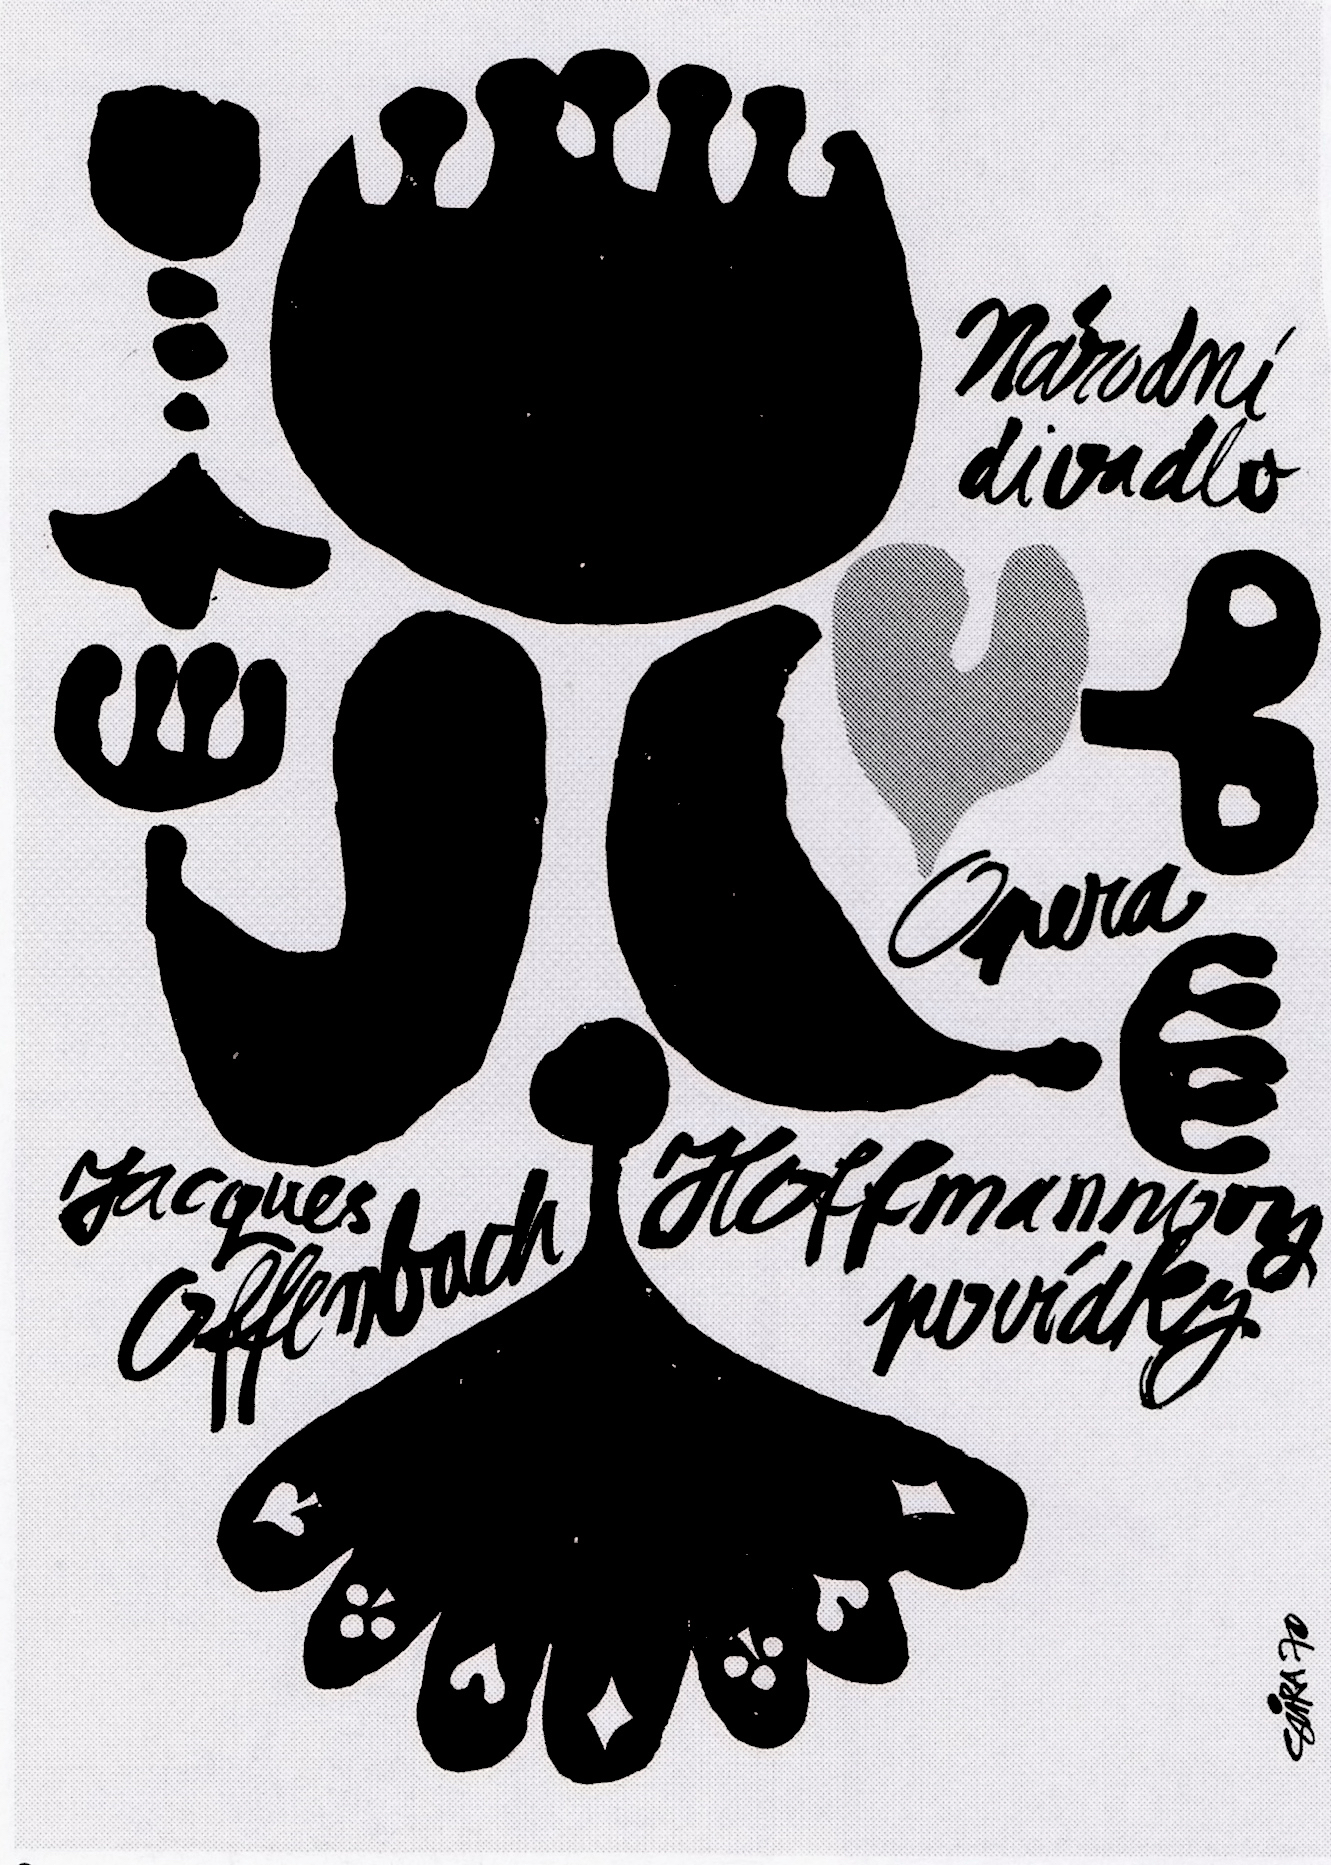 Národní
divadlo
Opera
Jacques
Offenbach
Hoffmannovy
povídky